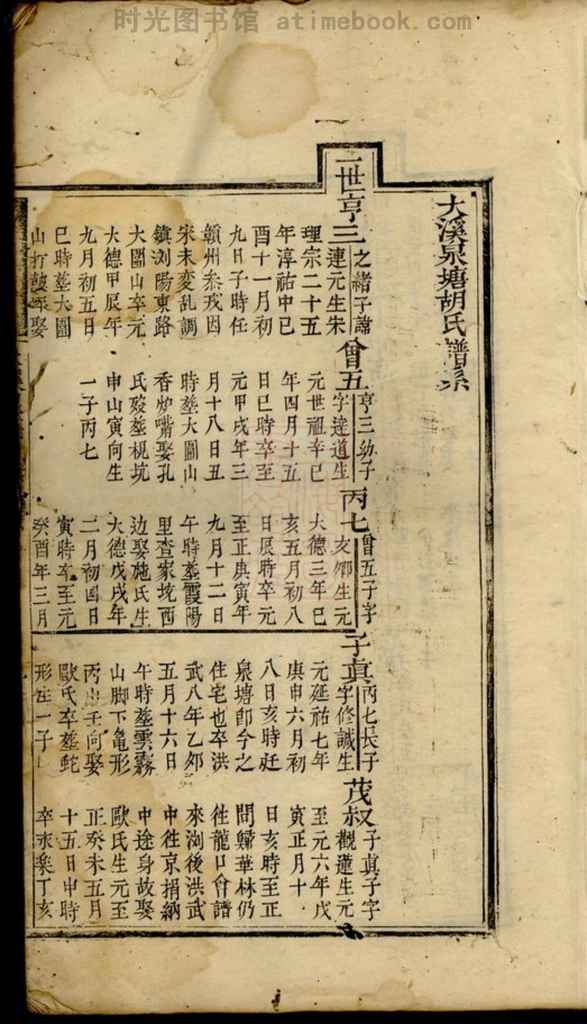 时光图书馆 - atimebook.com
大溪泉塘胡氏譜系
二世亨三
之緒子諱
連元生宋
理宗二十五
年淳祐中已
酉十一月初
九日子時任
贛州叅戎因
宋末变乱調
鎮浏陽東路
大圍山卒元
大德甲辰年
九月初五日
巳時塟大圍
山打皷坪娶
曾五
亨三幼子
字達道生
元世祖辛巳
年四月十五
日巳時卒至
元甲戌年三
月十八日丑
時塟大圍山
香炉嘴娶孔
氏殁塟枧坑
申山寅向生
一子丙七
丙七
曾五子字
友卿生元
大德三年巳
亥五月初八
日辰時卒元
至正庚寅年
九月十二日
午時塟霞陽
里查家坑西
边娶施氏生
大德戊戌年
二月初四日
寅時卒至元
癸酉年三月
子真
丙七长子
字修誠生
元延祐七年
庚申六月初
八日亥時廷
泉塘即今之
住宅也卒洪
武八年乙卯
五月十六日
午時塟雲霧
山脚下亀形
丙山壬向娶
歐氏卒塟蛇
形生一子
茂叔
子真子字
觀蓮生元
至元六年戊
寅正月十
日亥時至正
間歸華林仍
徃龍口會譜
來浏後洪武
中徃京捐納
中途身故娶
歐氏生元至
正癸未五月
十五日申時
卒永楽丁亥